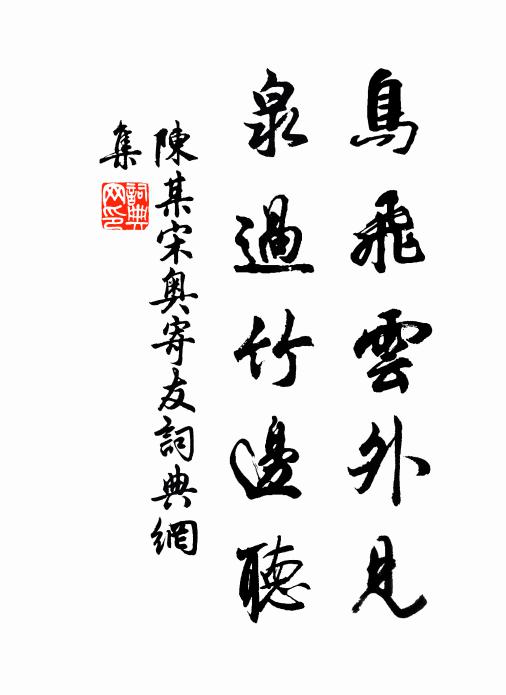 鳥飛雲外見
泉過竹邊聽
陳某宋奧寄友詞典網
集
詞典網印